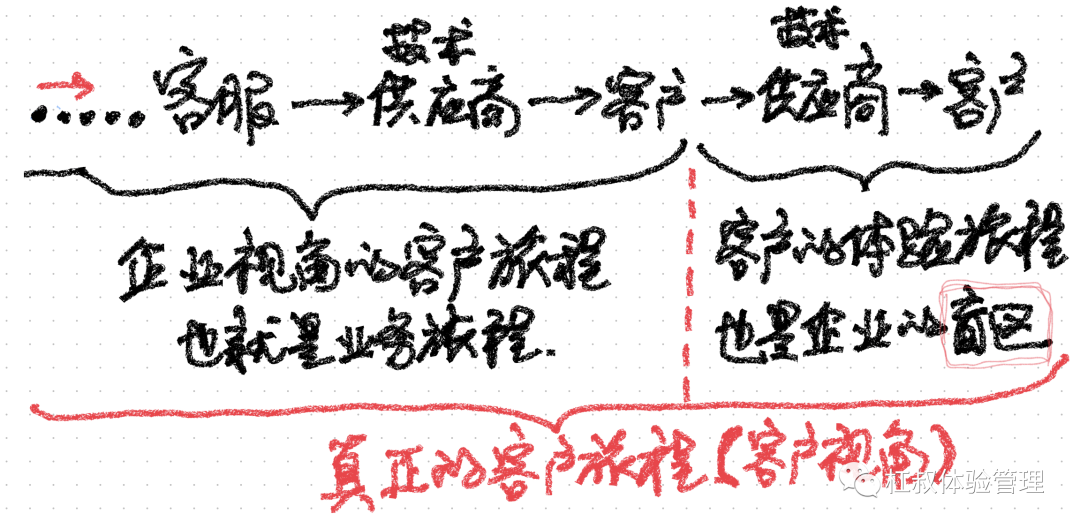 技术 技术
→ ..... 客服 → 供应商 → 客户 → 供应商 → 客户
企业视角的客户旅程
也就是业务旅程.
客户的体验旅程
也是企业的盲区
真正的客户旅程(客户视角)
杠叔体验管理